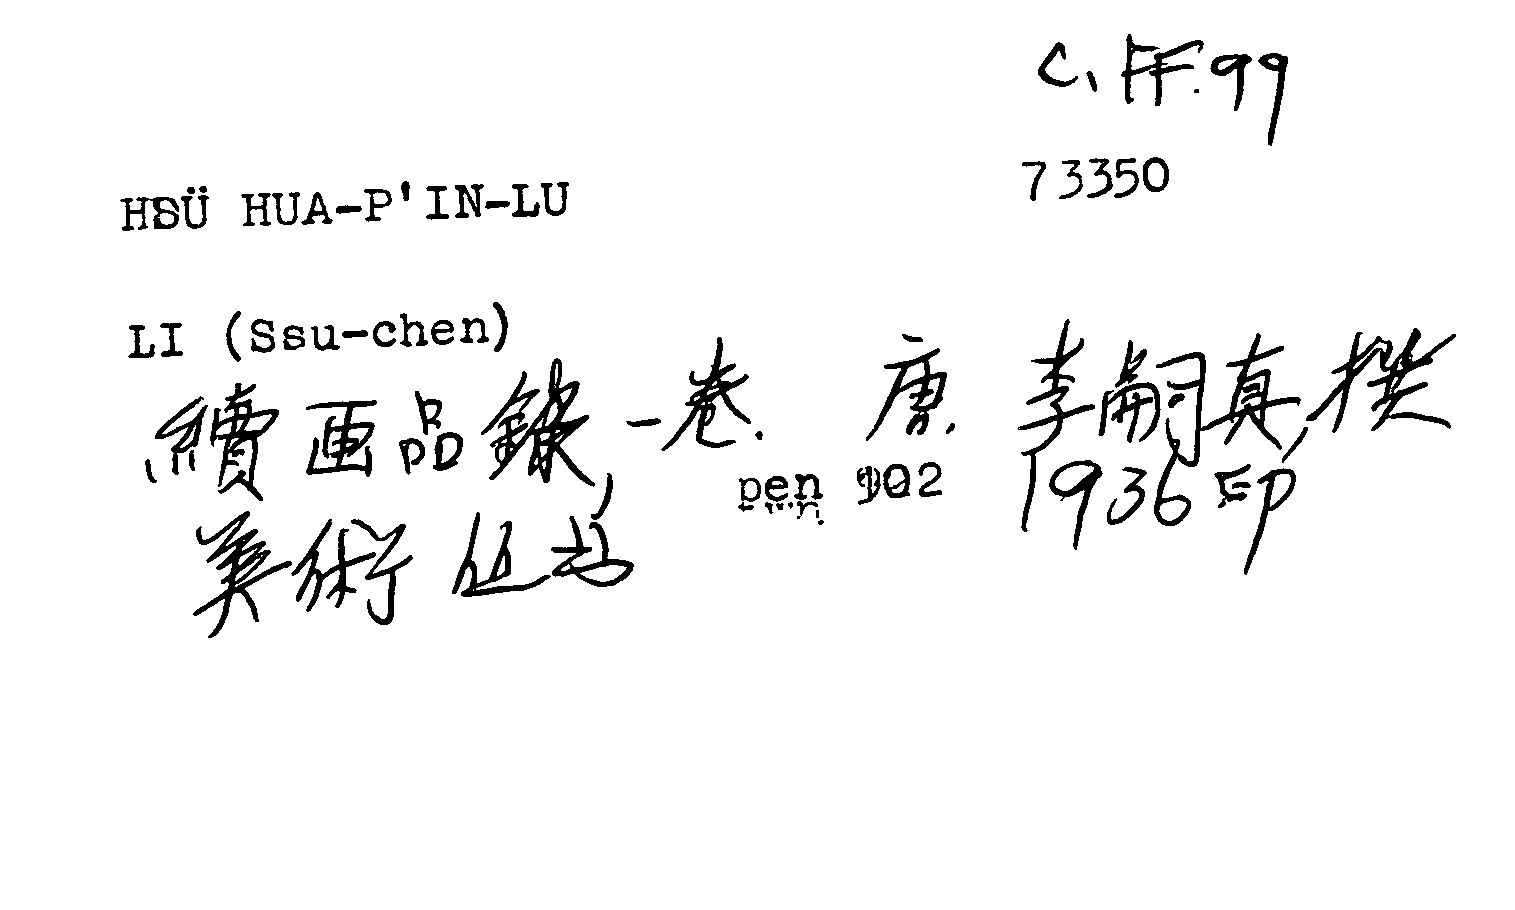 C. FF. 99
73350
HSÜ HUA-P'IN-LU
LI (Ssu-chen)
續画品錄, 一卷. 唐. 李嗣真, 撰
pen 102 1936 印,
美術丛书